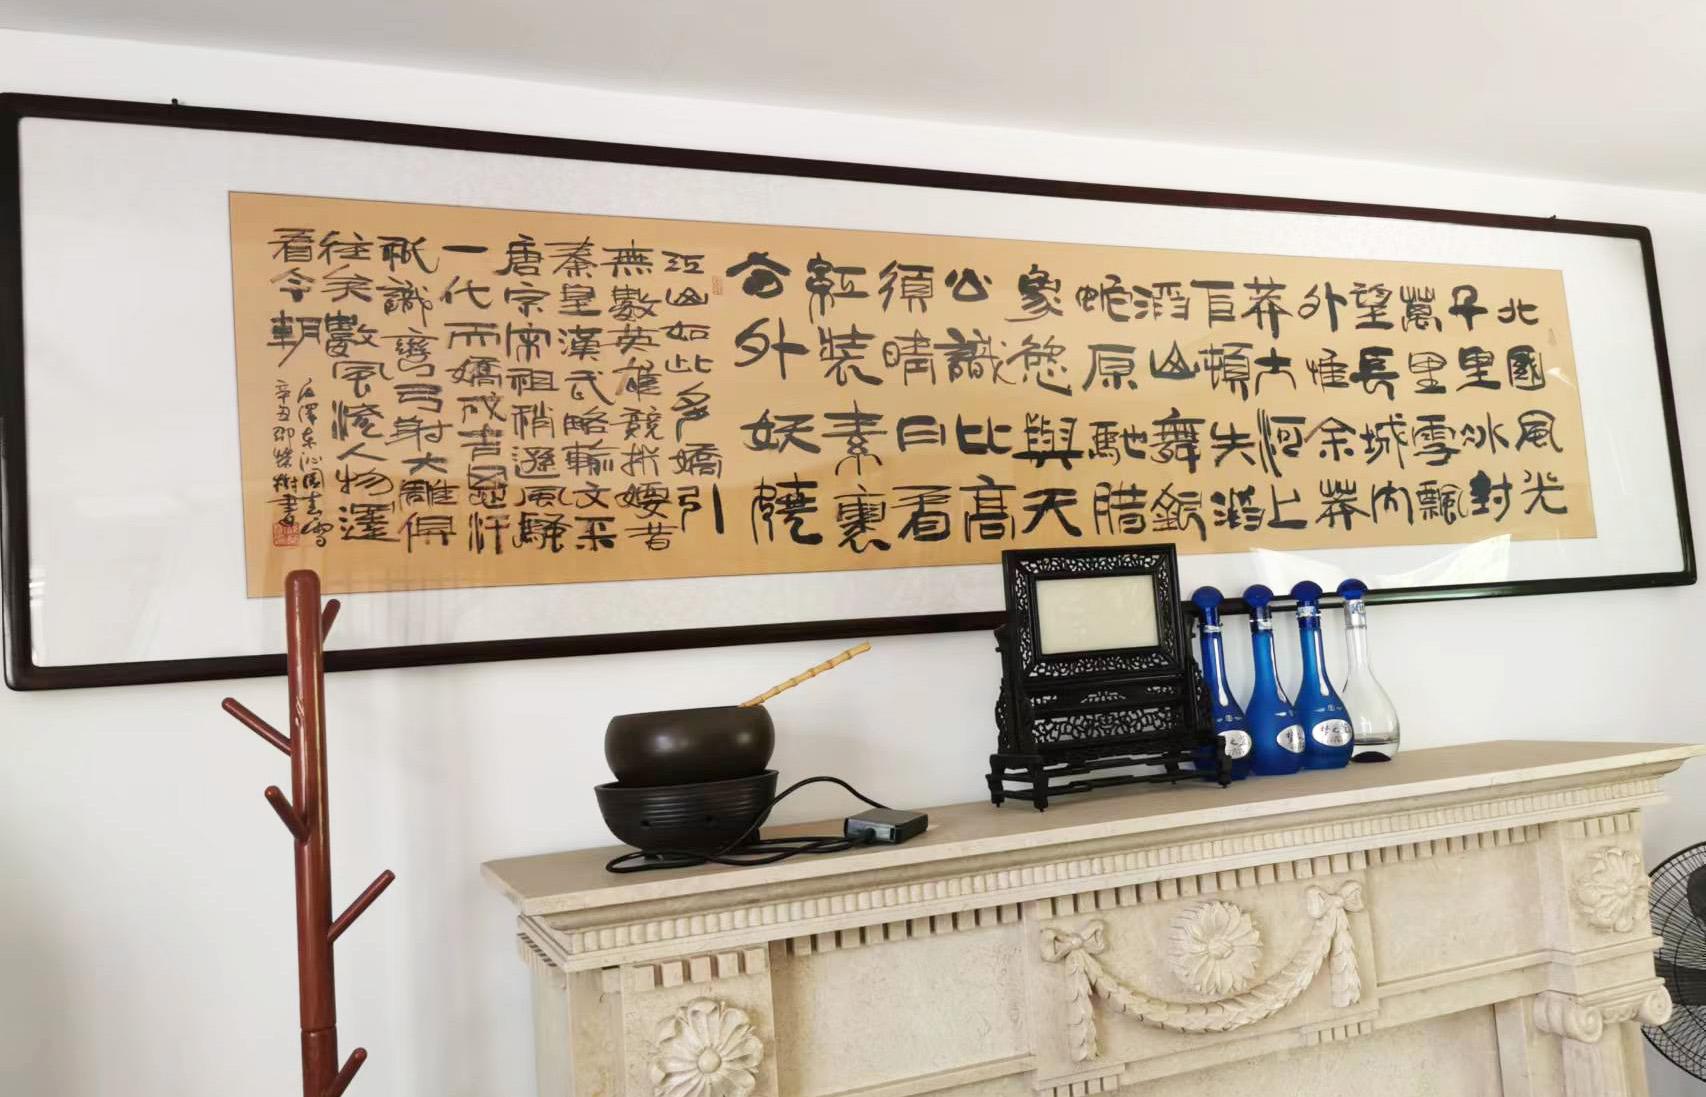 北國風光
千里冰封
萬里雪飄
望長城內
外惟余莽
莽大河上
下頓失滔
滔山舞銀
蛇原馳腊
象慾與天
公識比高
須晴日看
紅裝素裹
分外妖嬈
江山如此多嬌引
無數英雄競折腰昔
秦皇漢武略輸文采
唐宗宋祖稍遜風騷
一代天嬌成吉思汗
祇識彎弓射大雕俱
往矣數風流人物還
看今朝
毛澤東沁園春雪
辛丑邵樹書